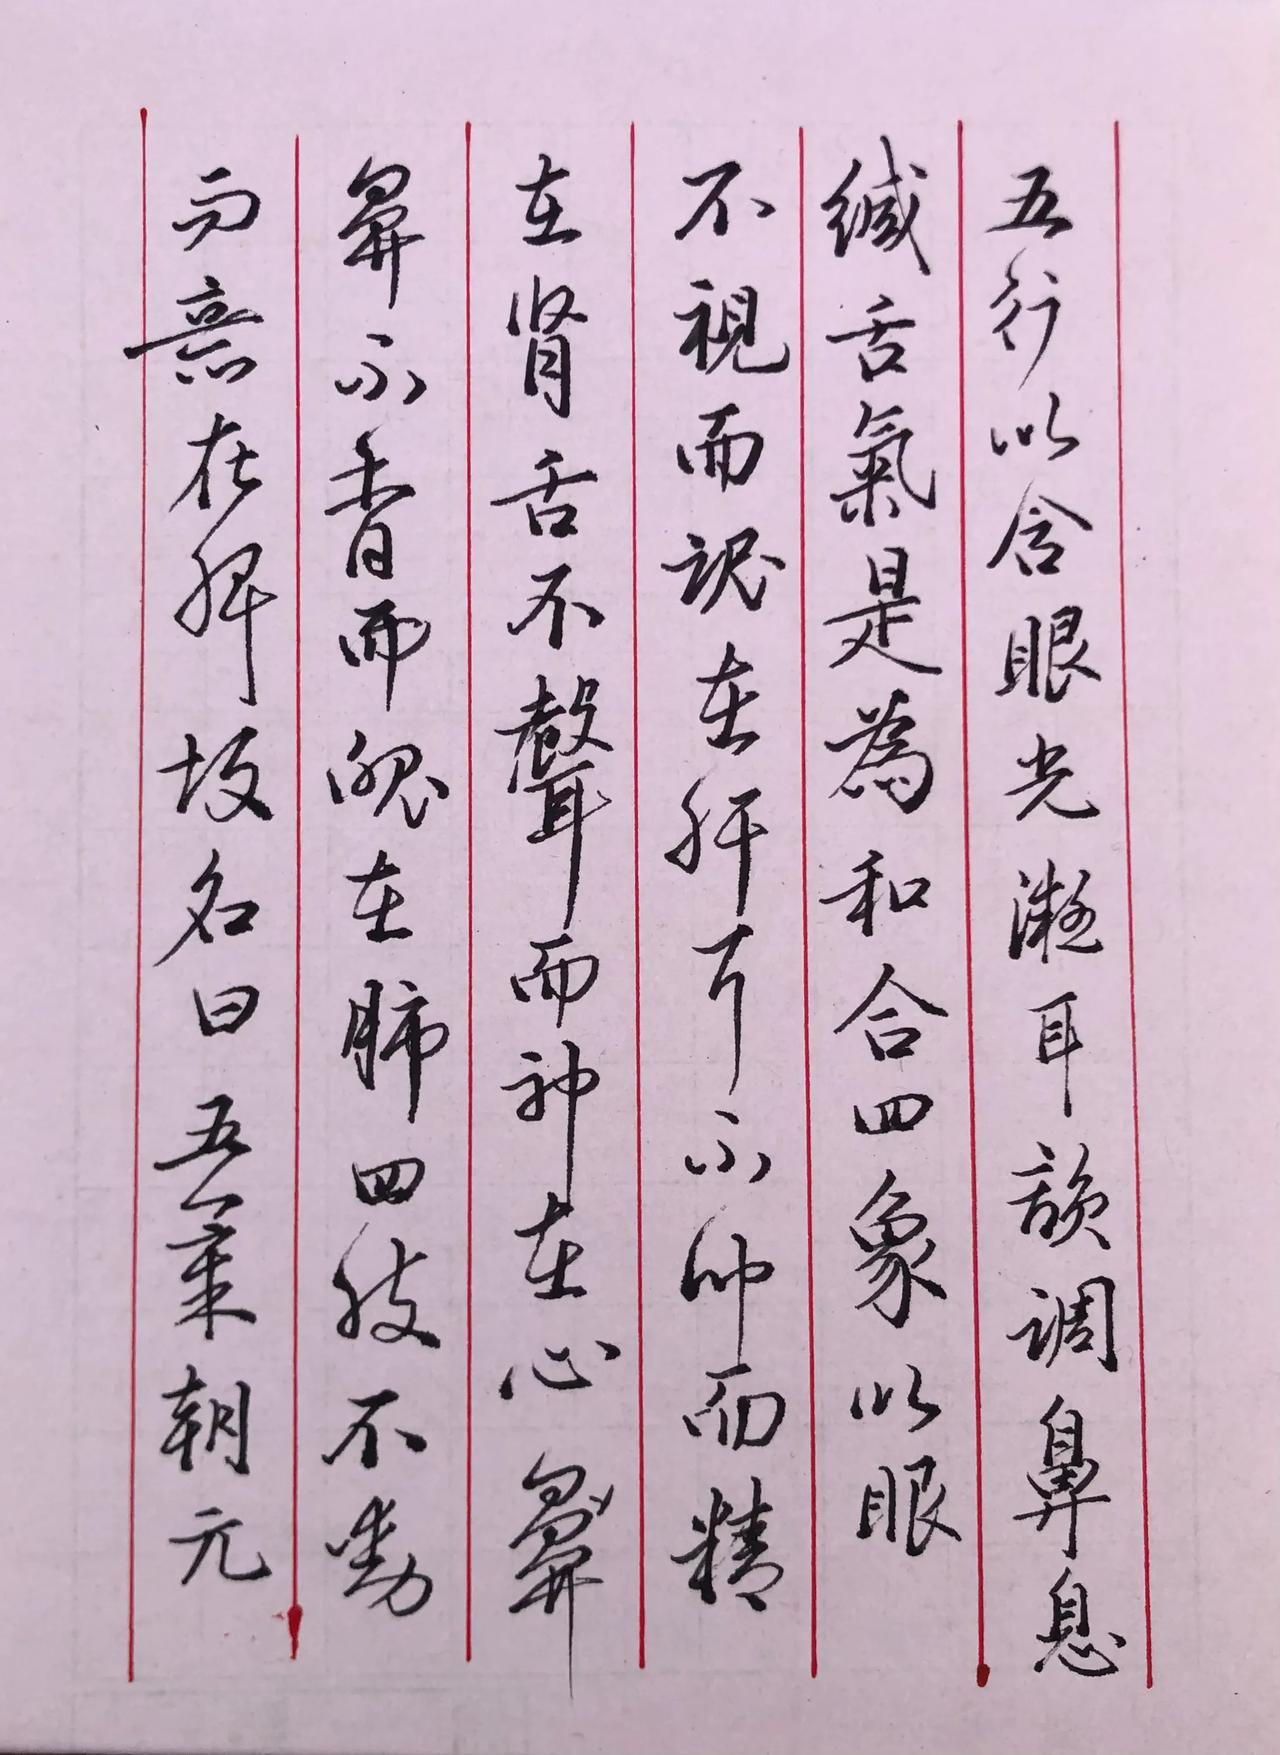 五行以含眼光凝耳韻調鼻息
緘舌氣是為和合四象以眼
不視而魂在肝耳不聞而精
在腎舌不聲而神在心鼻
鼻不香而魄在肺四肢不動
而意在脾故名曰五氣朝元